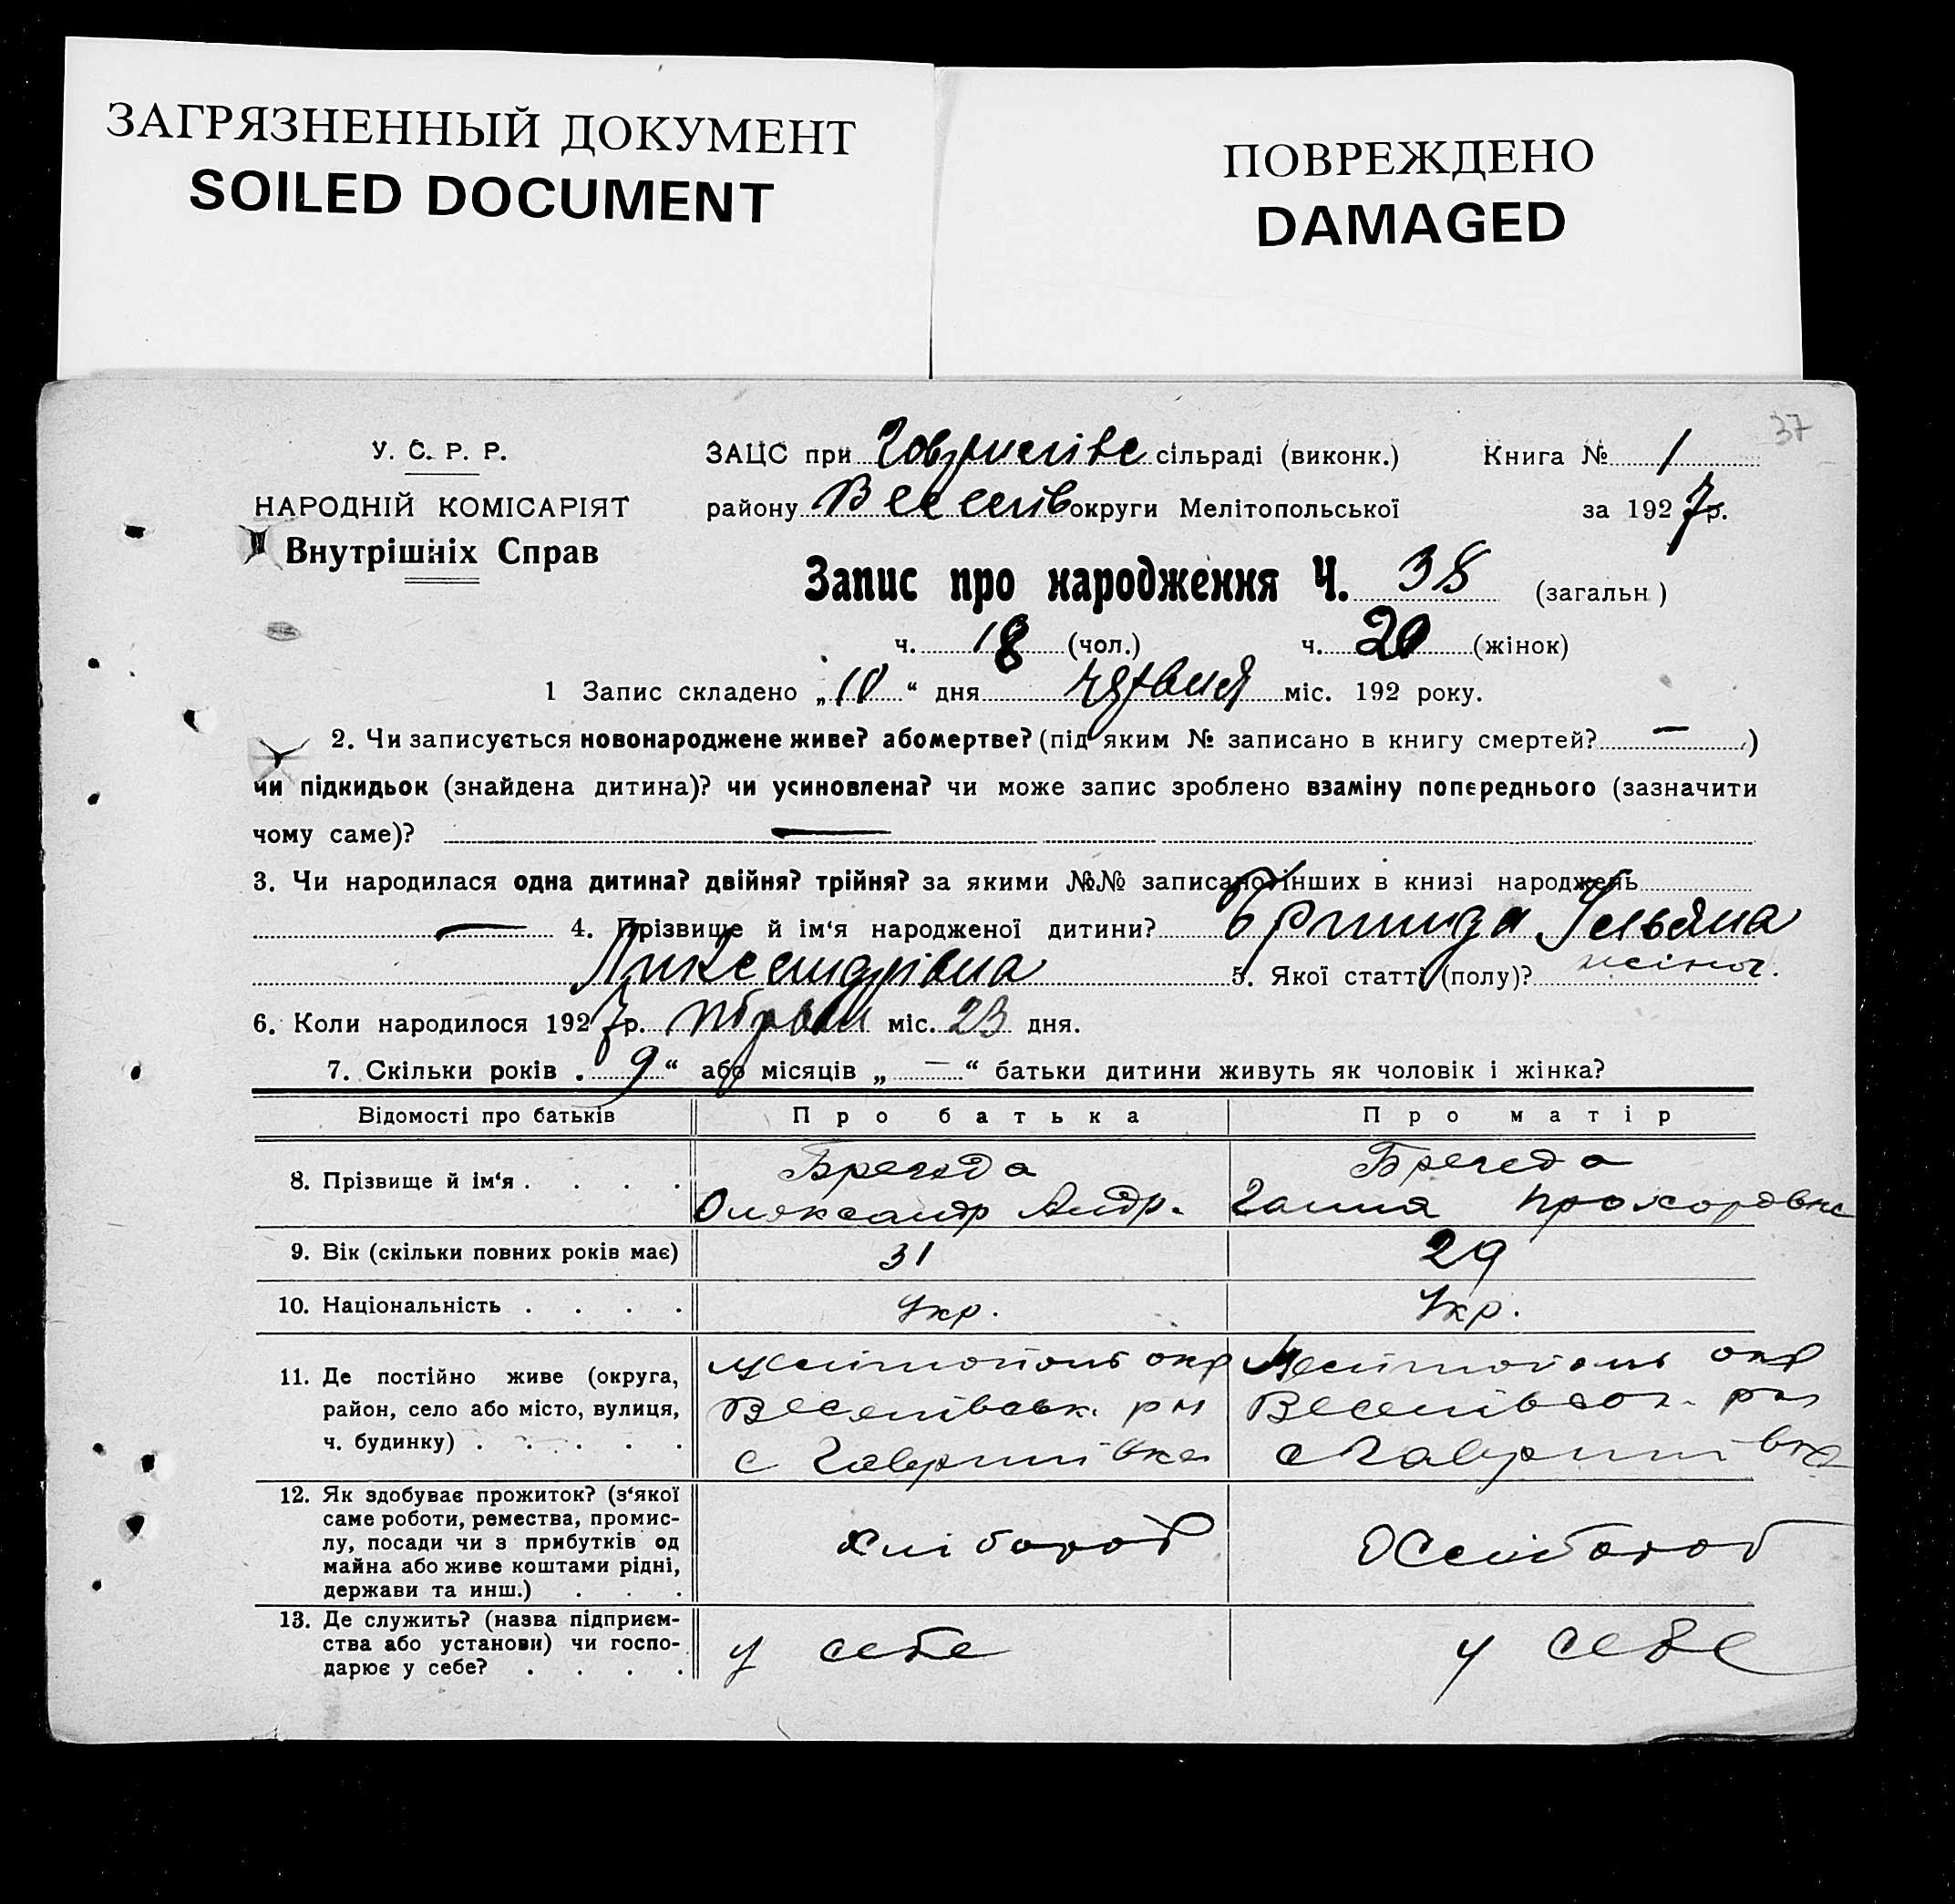 ЗАГРЯЗНЕННЫЙ ДОКУМЕНТ
SOILED DOCUMENT
ПОВРЕЖДЕНО
DAMAGED
37
У. С. Р. Р.
НАРОДНІЙ КОМІСАРІЯТ
Внутрішніх Справ
ЗАЦС при сільраді (виконк.) Книга № 1
району Веселів округи Мелітопольської за 1927 р.
Запис про народження Ч. 38 (загальн)
ч. 18 (чол.) ч. 20 (жінок)
1 Запис складено „10“ дня червня міс. 192 року.
2. Чи записується новонароджене живе? або мертве? (під яким № записано в книгу смертей? — )
чи підкидьок (знайдена дитина)? чи усиновлена? чи може запис зроблено взаміну попереднього (зазначити
чому саме)? —
3. Чи народилася одна дитина? двійня? трійня? за якими №№ записано інших в книзі народжень
— 4. Прізвище й ім‘я народженої дитини? Ульяна
5. Якої статті (полу)? жіноч.
6. Коли народилося 1927 р. міс. 23 дня.
7. Скільки років „9“ або місяців „—“ батьки дитини живуть як чоловік і жінка?
Відомості про батьків Про батька Про матір
8. Прізвище й ім‘я . . . . Брегеда Брегеда
Олександр Андр. Ганна Прохоровна
9. Вік (скільки повних років має) 31 29
10. Національність . . . . Укр. Укр.
11. Де постійно живе (округа, район, село або місто, вулиця, ч. будинку) . . . . .
Мелітополь окр Мелітополь окр
Веселівськ. рн Веселівськ. рн
с Гаврилівка с Гаврилівка
12. Як здобуває прожиток? (з‘якої
саме роботи, ремества, промис-
лу, посади чи з прибутків од
майна або живе коштами рідні,
держави та инш.) . . .
Хлібороб Хлібороб
13. Де служить? (назва підприєм-
ства або установи) чи госпо-
дарює у себе? . . . .
у себе у себе